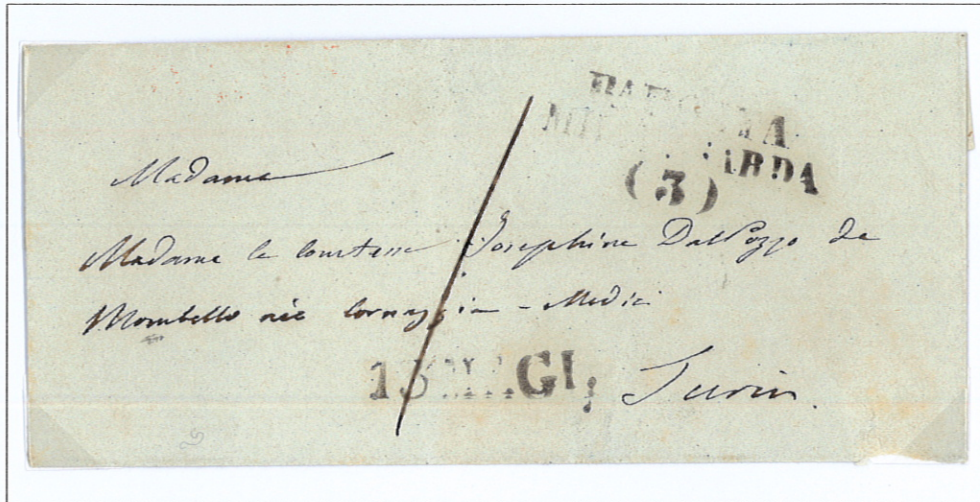 (3)
Madame
Madame la Comtesse Josephine Dal Pozzo de
Mombello née Cornaggia - Medici
13 MAG.
Turin.